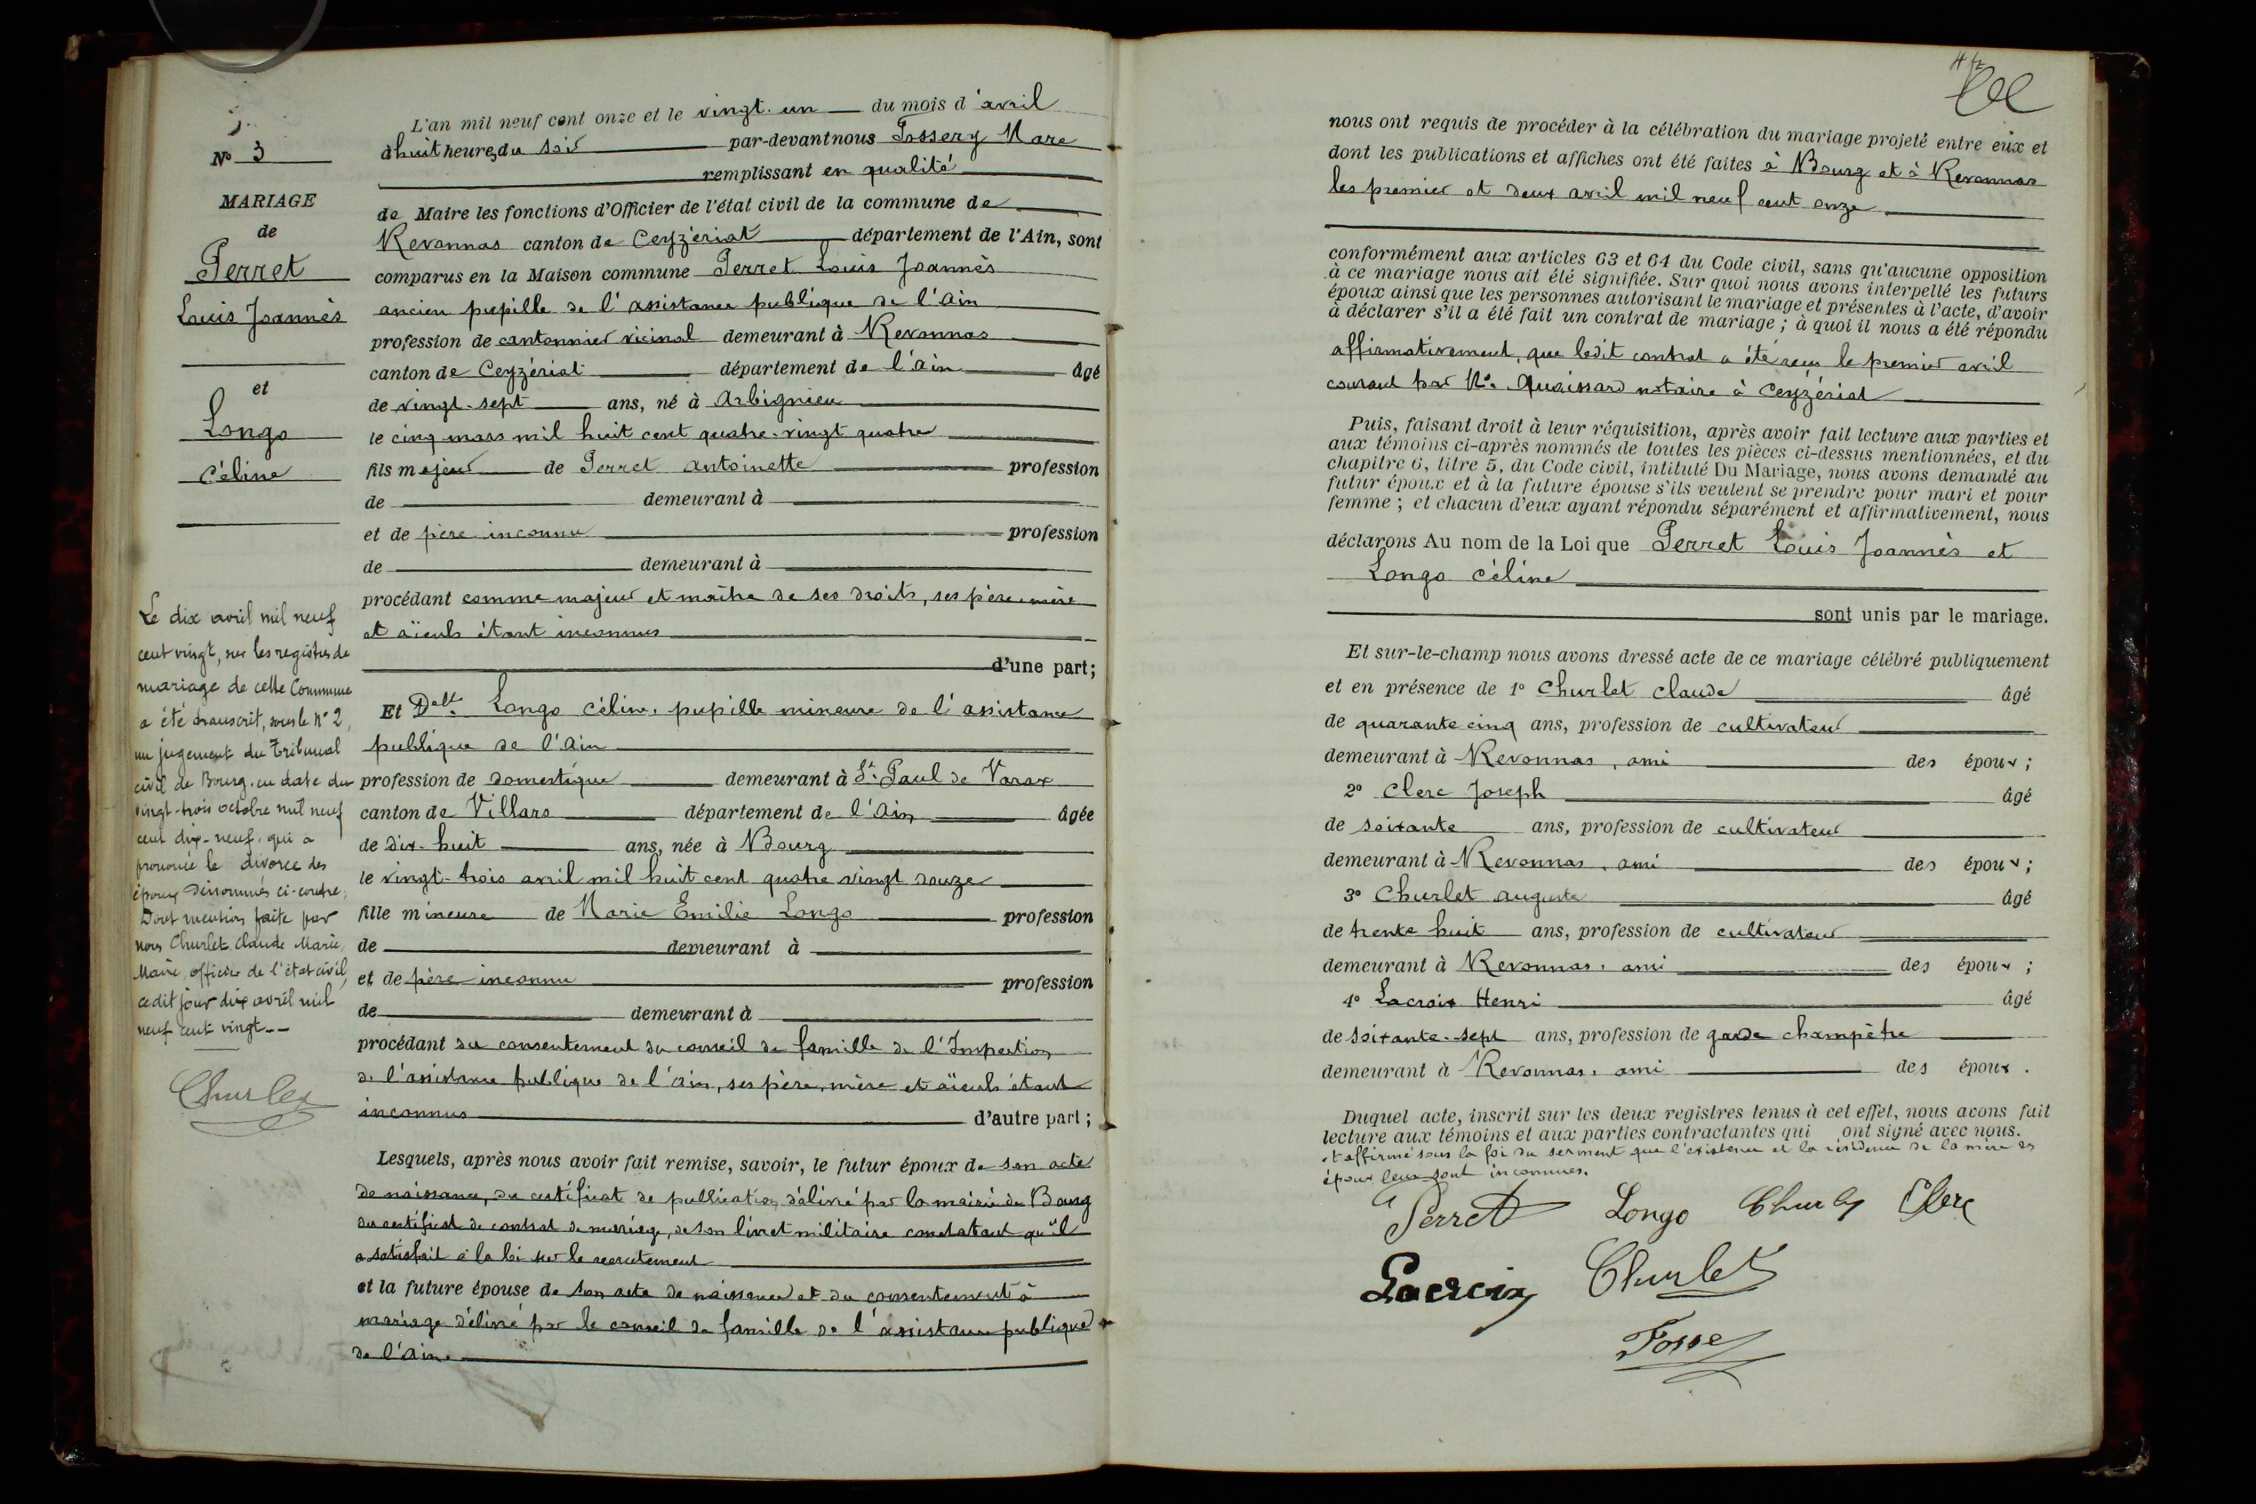 N° 3
MARIAGE
de
Perret
Louis Joannès
et
Longo
Céline
Le dix avril mil neuf
cent vingt, sur les registres de
mariage de cette Commune
a été transcrit, sous le N° 2,
un jugement du Tribunal
civil de Bourg, en date du
vingt-trois octobre mil neuf
cent dix-neuf, qui a
prononcé le divorce des
époux dénommés ci-contre.
Dont mention faite par
nous Churlet Claude Marie,
Maire, officier de l'état civil,
ce dit jour dix avril mil
neuf cent vingt
Churlet
L'an mil neuf cent onze et le vingt-un du mois d'avril
à huit heures du soir par-devant nous Fossery Marc
remplissant en qualité
de Maire les fonctions d'Officier de l'état civil de la commune de
Revonnas canton de Ceyzériat département de l'Ain, sont
comparus en la Maison commune Perret Louis Joannès
ancien pupille de l'assistance publique de l'Ain
profession de cantonnier vicinal demeurant à Revonnas
canton de Ceyzériat département de l'Ain âgé
de vingt-sept ans, né à Arbignieu
le cinq mars mil huit cent quatre-vingt quatre
fils majeur de Perret Antoinette profession
de demeurant à
et de père inconnu profession
de demeurant à
procédant comme majeur et maître de ses droits, ses père, mère
et aïeuls étant inconnus
d'une part;
Et Delle Longo Céline, pupille mineure de l'assistance
publique de l'Ain
profession de domestique demeurant à St Paul de Varax
canton de Villars département de l'Ain âgée
de dix-huit ans, née à Bourg
le vingt-trois avril mil huit cent quatre vingt douze
fille mineure de Marie Emilie Longo profession
de demeurant à
et de père inconnu profession
de demeurant à
procédant du consentement du conseil de famille de l'Inspection
de l'assistance publique de l'Ain, ses père, mère et aïeuls étant
inconnus d'autre part;
Lesquels, après nous avoir fait remise, savoir, le futur époux de son acte
de naissance, du certificat de publication délivré par la mairie de Bourg
du certificat de contrat de mariage, de son livret militaire constatant qu'il
a satisfait à la loi sur le recrutement
et la future épouse de son acte de naissance et du consentement à
mariage délivré par le conseil de famille de l'assistance publique
de l'Ain
nous ont requis de procéder à la célébration du mariage projeté entre eux et
dont les publications et affiches ont été faites à Bourg et à Revonnas
les premier et deux avril mil neuf cent onze
conformément aux articles 63 et 64 du Code civil, sans qu'aucune opposition
à ce mariage nous ait été signifiée. Sur quoi nous avons interpellé les futurs
époux ainsi que les personnes autorisant le mariage et présentes à l'acte, d'avoir
à déclarer s'il a été fait un contrat de mariage; à quoi il nous a été répondu
affirmativement, que ledit contrat a été reçu le premier avril
courant par Me Quaissard notaire à Ceyzériat
Puis, faisant droit à leur réquisition, après avoir fait lecture aux parties et
aux témoins ci-après nommés de toutes les pièces ci-dessus mentionnées, et du
chapitre 6, titre 5, du Code civil, intitulé Du Mariage, nous avons demandé au
futur époux et à la future épouse s'ils veulent se prendre pour mari et pour
femme; et chacun d'eux ayant répondu séparément et affirmativement, nous
déclarons Au nom de la Loi que Perret Louis Joannès et
Longo Céline
sont unis par le mariage.
Et sur-le-champ nous avons dressé acte de ce mariage célébré publiquement
et en présence de 1° Churlet Claude âgé
de quarante cinq ans, profession de cultivateur
demeurant à Revonnas, ami des époux;
2° Clerc Joseph âgé
de soixante ans, profession de cultivateur
demeurant à Revonnas, ami des époux;
3° Churlet Auguste âgé
de trente huit ans, profession de cultivateur
demeurant à Revonnas, ami des époux;
4° Lacroix Henri âgé
de soixante-sept ans, profession de garde champêtre
demeurant à Revonnas, ami des époux.
Duquel acte, inscrit sur les deux registres tenus à cet effet, nous avons fait
lecture aux témoins et aux parties contractantes qui ont signé avec nous.
et affirmé sous la foi du serment que l'existence et la résidence de la mère des
époux leur sont inconnues.
Perret Longo Churlet Clerc
Lacroix Churlet